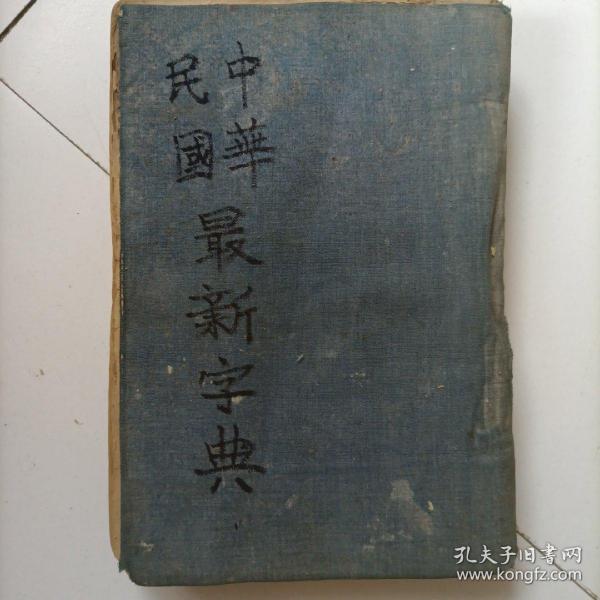 中華
民國
最新字典
孔夫子旧書网
www.kongfz.com